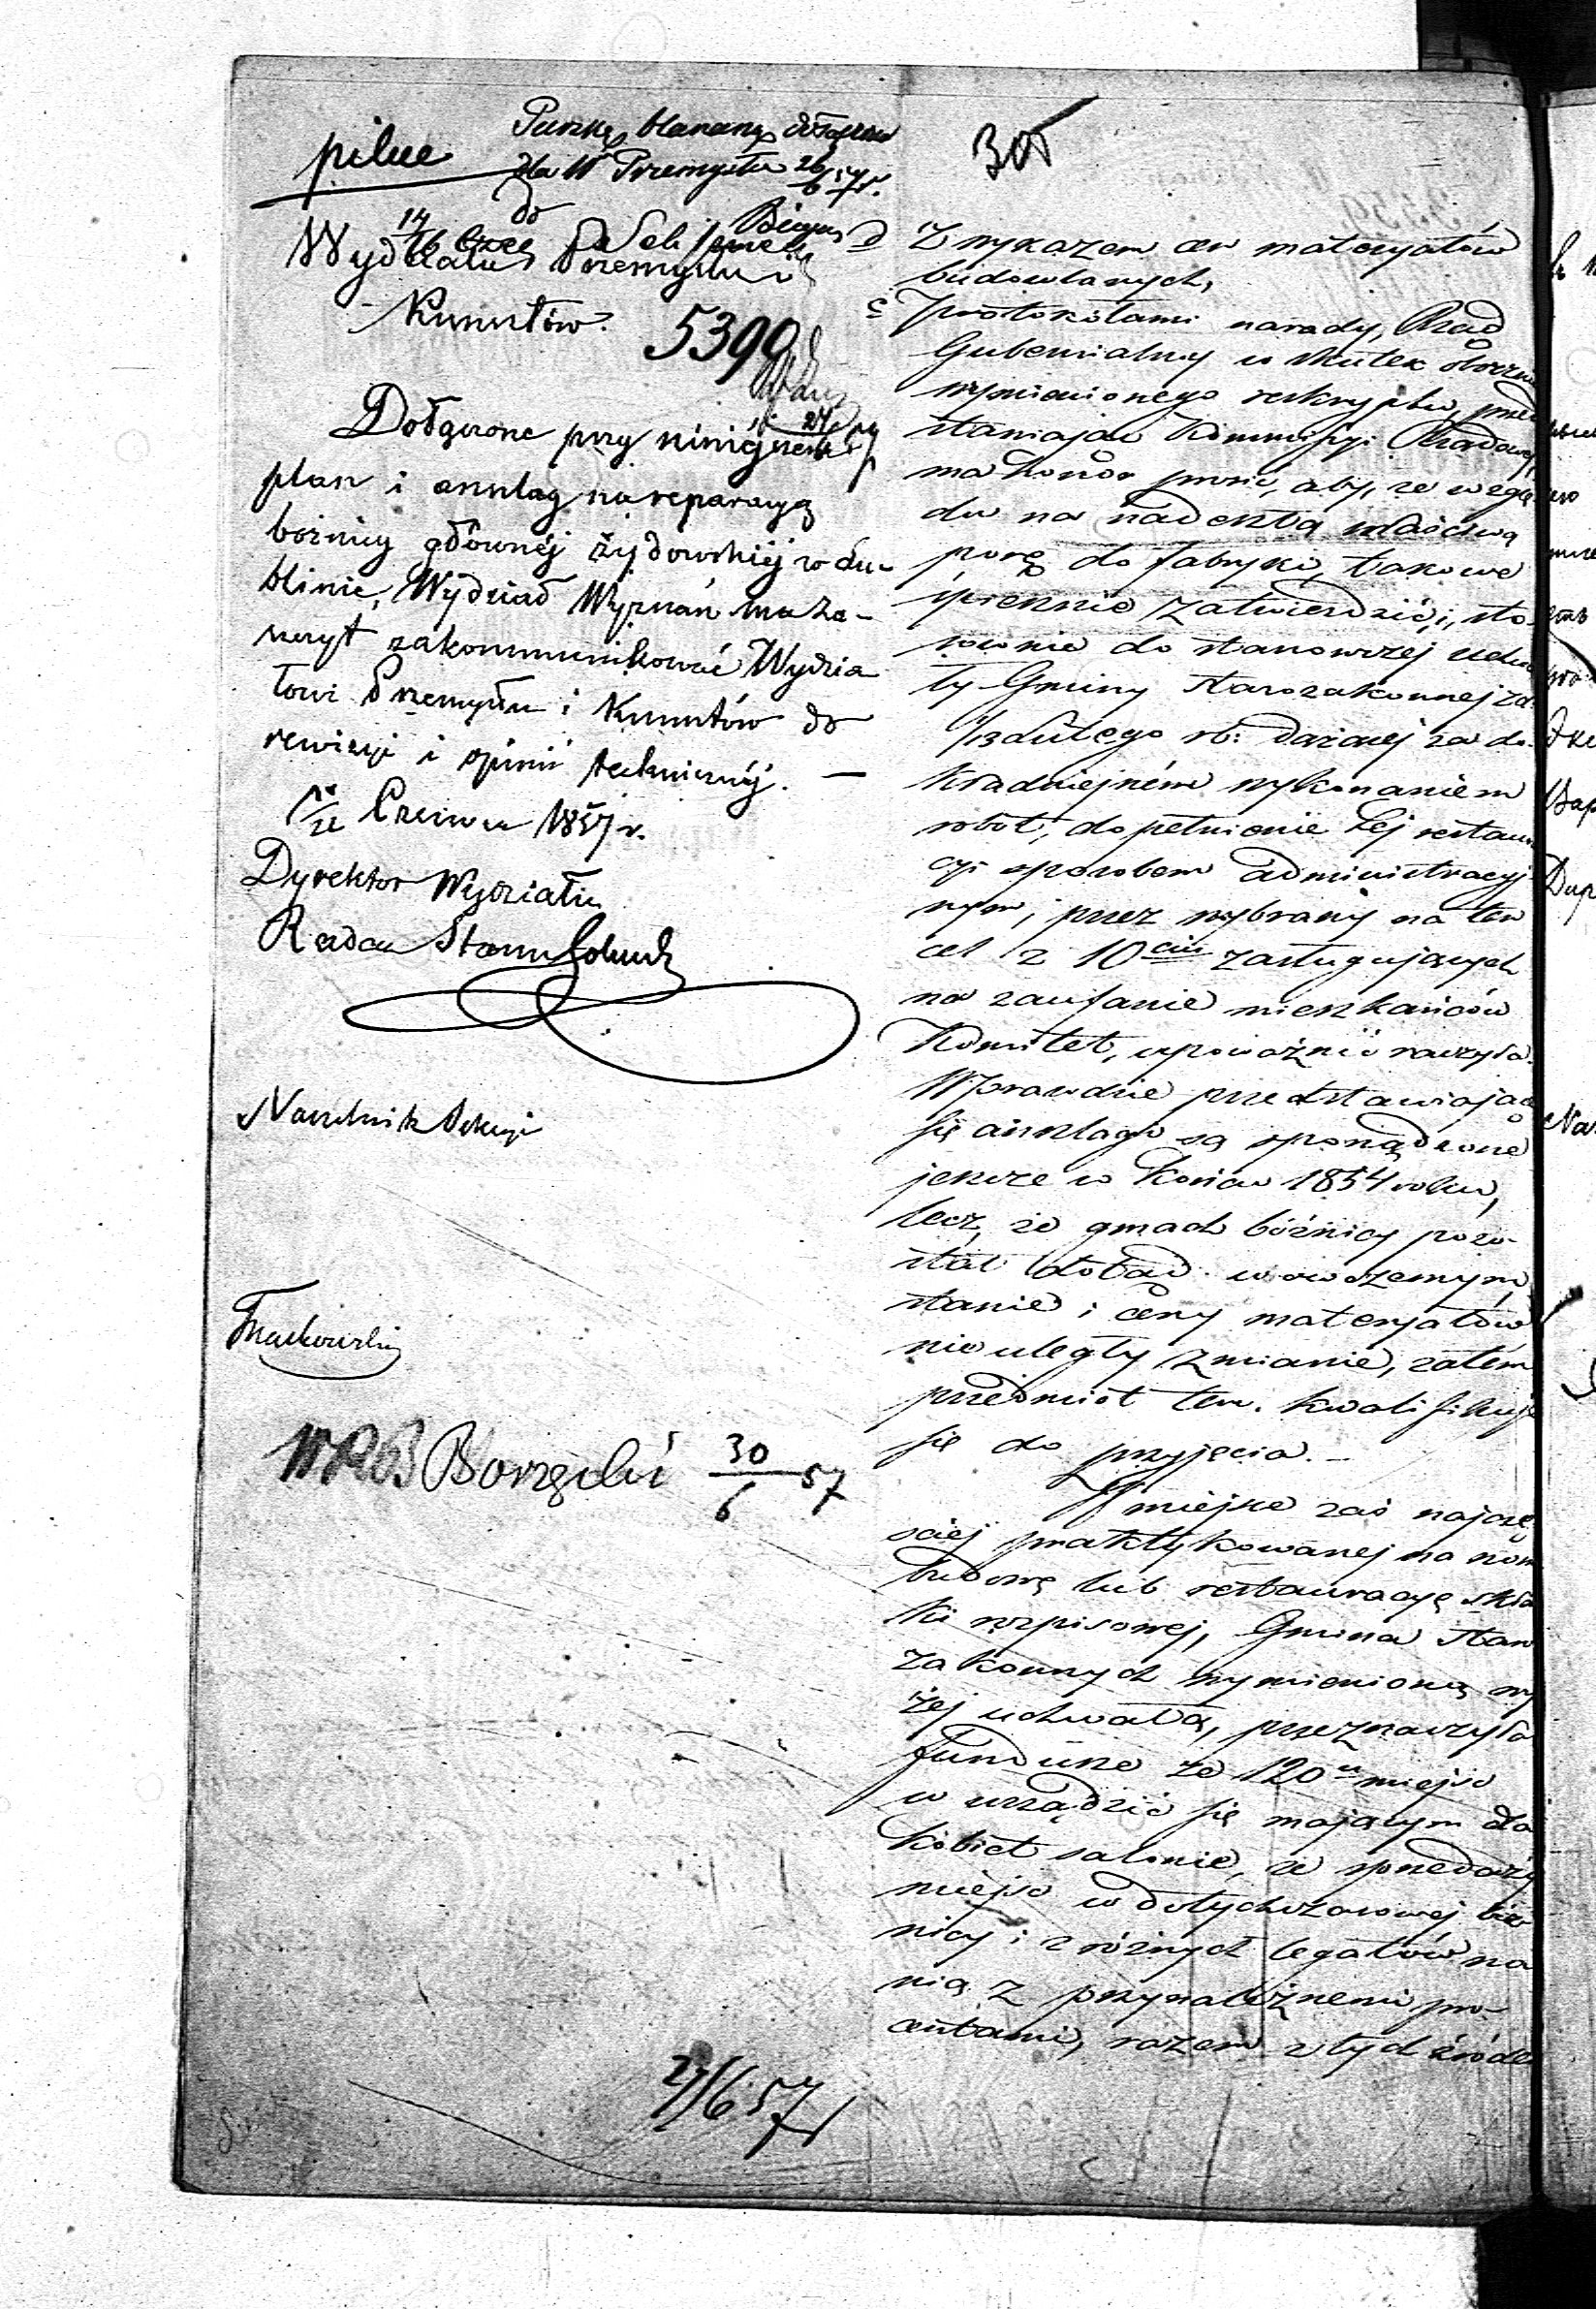 pilne
Puszkę blaszaną dołączono
dla W Przemysłu 26/6 57 r.
do
Wydziału Przemysłu i
Kunsztów.
5390
Dołączone przy niniejszem
plan i anszlag na reparacyą
bożnicy głównéj żydowskiéj w Lu-
blinie, Wydział Wyznań ma za-
szczyt zakommunikować Wydzia
łowi Przemysłu i Kunsztów do
rewizyi i opinii technicznéj. —
Czerwca 1857 r.
Dyrektor Wydziału
Radca Stanu
Naczelnik Sekcyi
30/6 57
27/6 57
305
d Z wykazem cen materyałów
budowlanych,
e protokółami narady, Rząd
Gubernialny w skutek obocznie
wymienionego reskryptu, przed
stawiając Kommissyi Rządowej,
ma honor prosić, aby, ze wzglę
du na nadeszłą właściwą
porę do fabryki, takowe
śpiesznie zatwierdzić i, sto
sownie do stanowczej uchwa
ły Gminy Starozakonnej za
1/13 Lutego rb: dążącej za do-
kładniejszém wykonaniem
robót, dopełnienie tej restaura
cyi sposobem administracyj
nym, przez wybrany na ten
cel z 10ciu zasługujących
na zaufanie mieszkańców
Komitet, upoważnić raczyła.
Wprawdzie przedstawiające
się anszlagi są sporządzone
jeszcze w końcu 1854 roku,
lecz, że gmach bóżnicy pozo-
stał dotąd w owoczesnym
stanie i ceny materyałów
nie uległy zmianie, zatém
przedmiot ten kwalifikuje
się do przyjęcia. —
W miejsce zaś najczę
ściej praktykowanej na now
budowę lub restauracyę skła
ki rozpisowej, Gmina Staro
zakonnych wymienioną wy
żej uchwałą, przeznaczyła
fundusze ze 120u miejsc
w urządzić się mającym dla
kobiet salonie, ze sprzedaży
miejsc w dotychczasowej bóż
nicy i z różnych legatów na
nią z przynależnemi pro-
centami, razem z tych źródeł